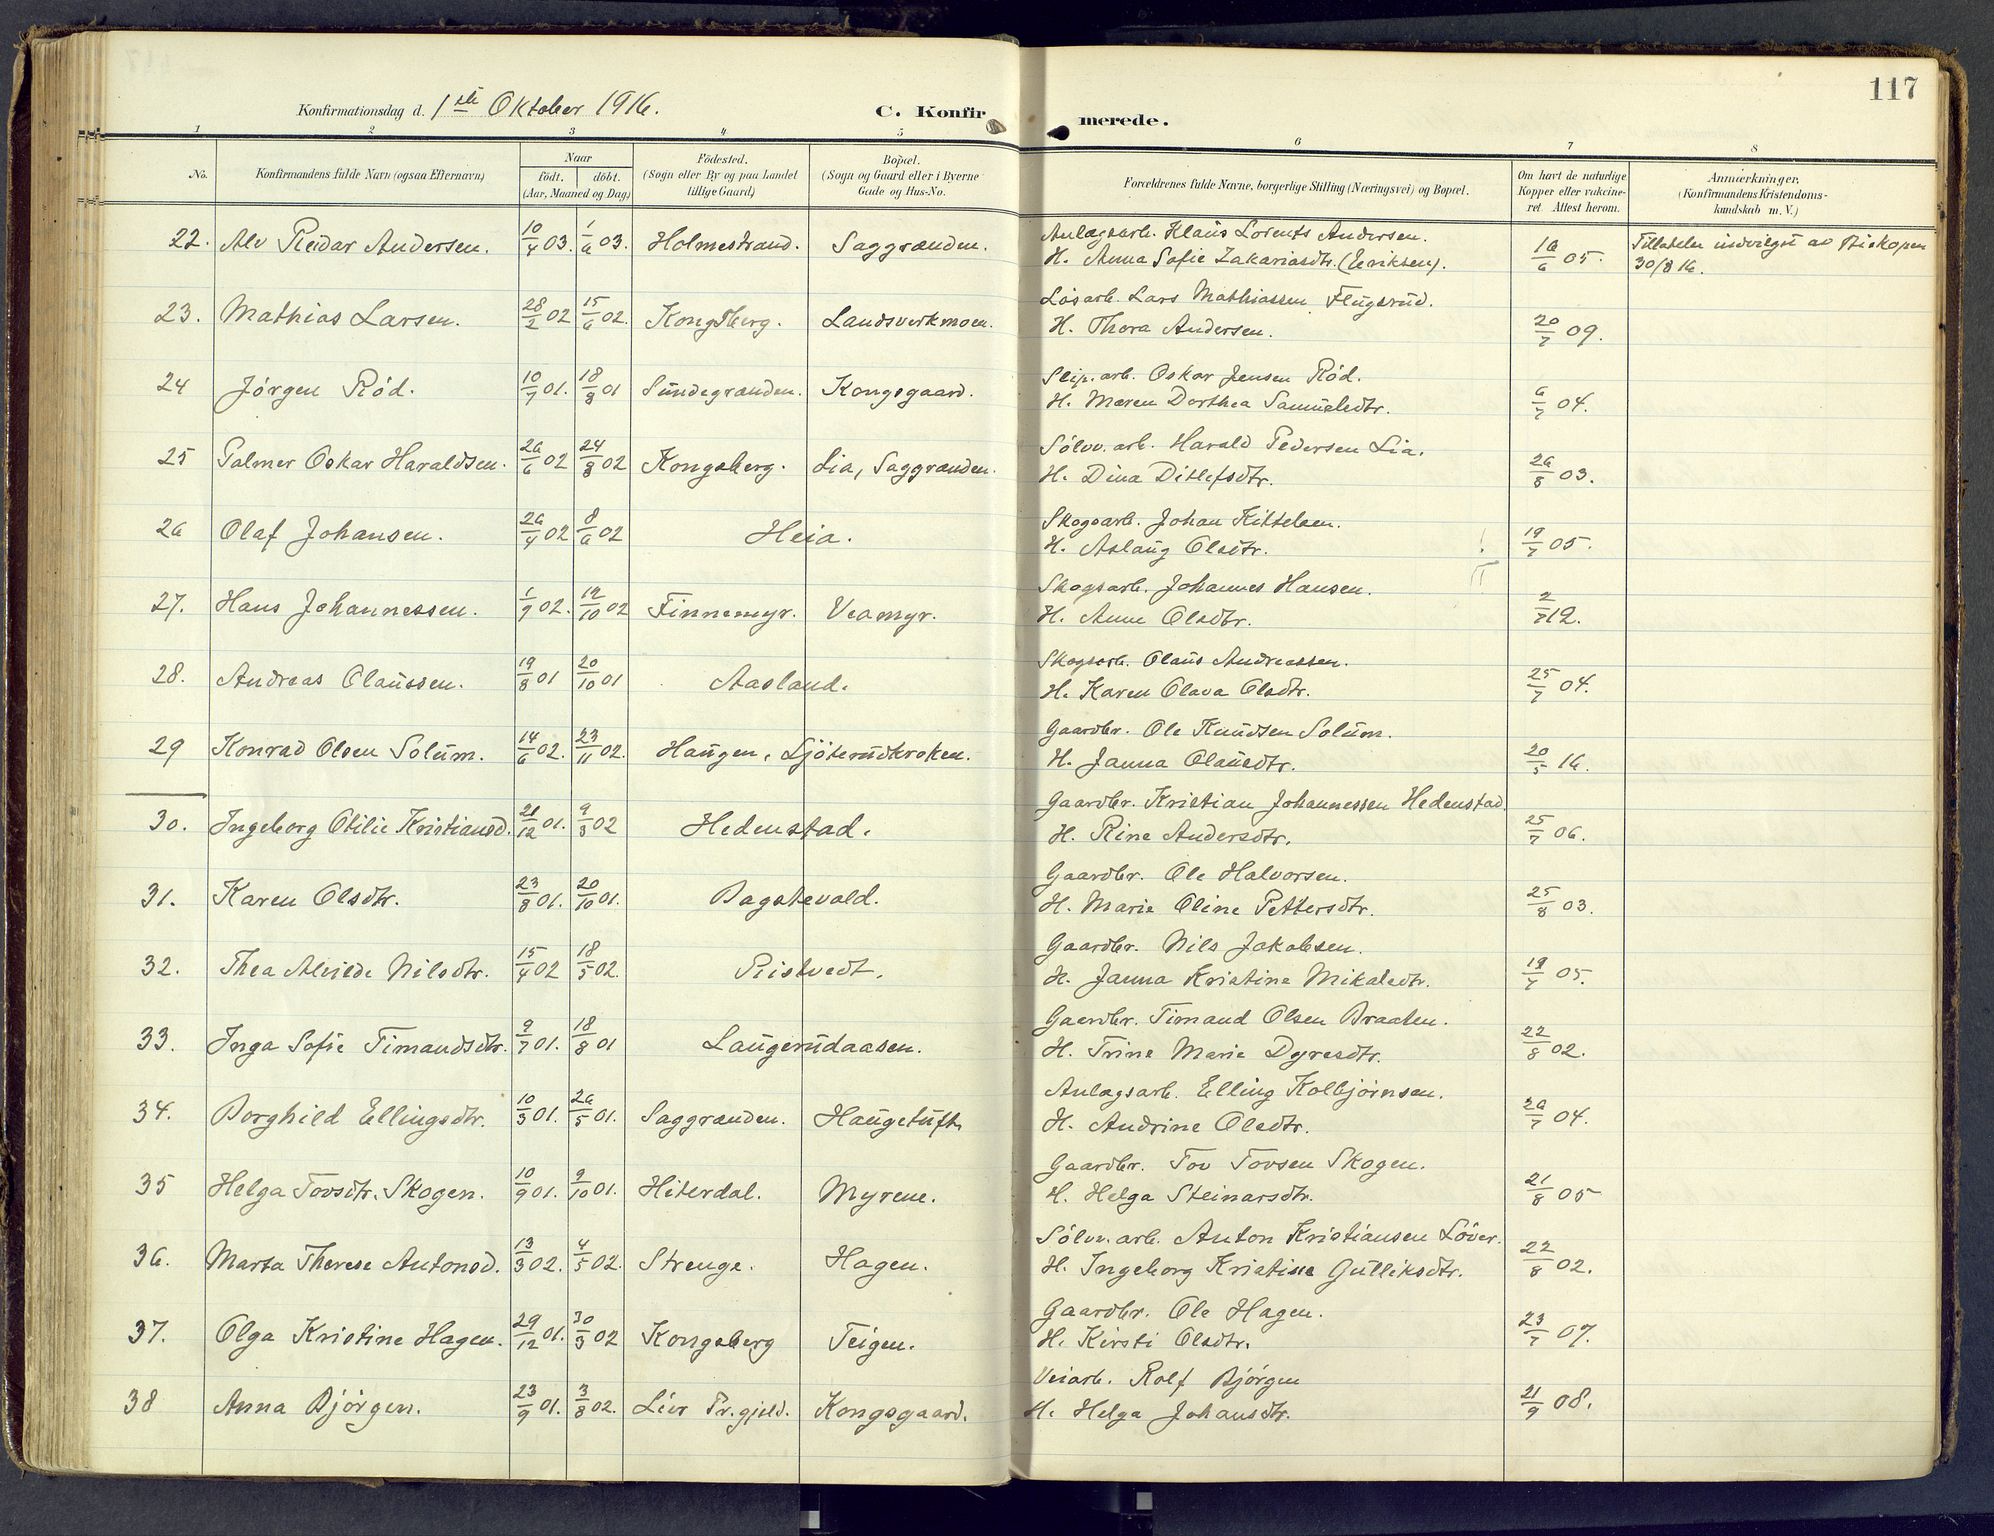 117
Konfirmationsdag d. 1ste Oktober 1916.
C. Konfirmerede.
1 2 3 4 5 6 7 8
No.
Konfirmandens fulde Navn (ogsaa Efternavn)
Naar
født. døbt.
(Aar, Maaned og Dag)
Fødested.
(Sogn eller By og paa Landet
tillige Gaard)
Bopæl.
(Sogn og Gaard eller i Byerne
Gade og Hus-No.
Forældrenes fulde Navne, borgerlige Stilling (Næringsvei) og Bopæl.
Om havt de naturlige
Kopper eller vakcine-
ret Attest herom.
Anmærkninger.
(Konfirmandens Kristendoms-
kundskab m. V.)
22. Alv Reidar Andersen. 10/4 03. 1/6 03. Holmestrand. Saggrænden. Anlægsarb. Klaus Lorents Andersen.
H. Anna Sofie Zakariasdtr. (Eriksen). 16/6 05. Tilladelse indvilget av Biskopen
30/8 16.
23. Mathias Larsen. 28/2 02 15/6 02. Kongsberg. Landsverkmoen. Løsarb. Lars Mathiassen Flugsrud.
H. Thora Andersen. 20/7 09.
24 Jørgen Rød. 10/7 01. 18/8 01 Sundegrænden. Kongsgaard. Slip.arb. Oskar Jensen Rød.
H. Maren Dorthea Samuelsdtr. 6/7 04.
25 Palmer Oskar Haraldsen. 26/6 02 24/8 02 Kongsberg. Lia, Saggrænden. Sølvv.arb. Harald Pedersen Lia.
H. Dina Ditlefsdtr. 26/8 03.
26 Olaf Johansen. 26/4 02 8/6 02 Heia. Skogsarb. Johan Kittelsen.
H. Aslaug Olsdtr. 19/7 05.
27. Hans Johannessen. 1/9 02. 12/10 02 Finnemyr. Veamyr. Skogsarb. Johannes Hansen.
H. Anne Olsdtr. 2/7 12.
28. Andreas Olaussen. 19/8 01 20/10 01 Aasland. Skogsarb. Olaus Andreassen.
H. Karen Olava Olsdtr. 25/7 04.
29 Konrad Olsen Solum. 14/6 02. 23/11 02. Haugen, Ljøterudkroken. Gaardbr. Ole Knudsen Solum.
H. Janna Olausdtr. 20/5 16.
30. Ingeborg Otilie Kristiansd. 21/12 01. 9/3 02 Hedenstad. Gaardbr. Kristian Johannessen Hedenstad
H. Rine Andersdtr. 25/7 06.
31. Karen Olsdtr. 23/8 01. 20/10 01. Bagstevold. Gaardbr. Ole Halvorsen.
H. Marie Oline Pettersdtr. 25/8 03.
32. Thea Alvilde Nilsdtr. 15/4 02 18/5 02. Ristvedt. Gaardbr. Nils Jakobsen.
H. Janna Kristine Mikalsdtr. 19/7 05.
33. Inga Sofie Timandsdtr. 9/7 01. 18/8 01 Laugerudaasen. Gaardbr. Timand Olsen Braaten.
H. Trine Marie Dyresdtr. 22/8 02.
34. Borghild Ellingsdtr. 10/3 01. 26/5 01. Saggrænden. Haugetuft. Anlægsarb. Elling Kolbjørnsen.
H. Andrine Olsdtr. 26/7 04.
35 Helga Tovsdtr. Skogen. 10/9 01. 9/10 01. Hiterdal. Myrene. Gaardbr. Tov Tovsen Skogen.
H. Helga Steinarsdtr. 21/8 05
36. Marta Therese Antonsd. 13/3 02. 4/5 02. Strenge. Hagen. Sølvv.arb. Anton Kristiansen Løver.
H. Ingeborg Kristine Gulliksdtr. 22/8 02.
37. Olga Kristine Hagen. 29/12 01. 30/3 02 Kongsberg Teigen. Gaardbr. Ole Hagen.
H. Kirsti Olsdtr. 23/7 07.
38 Anna Bjørgen. 23/9 01. 3/8 02. Lier Pr.gjeld. Kongsgaard. Veiarb. Rolf Bjørgen
H. Helga Johansdtr. 21/9 08.